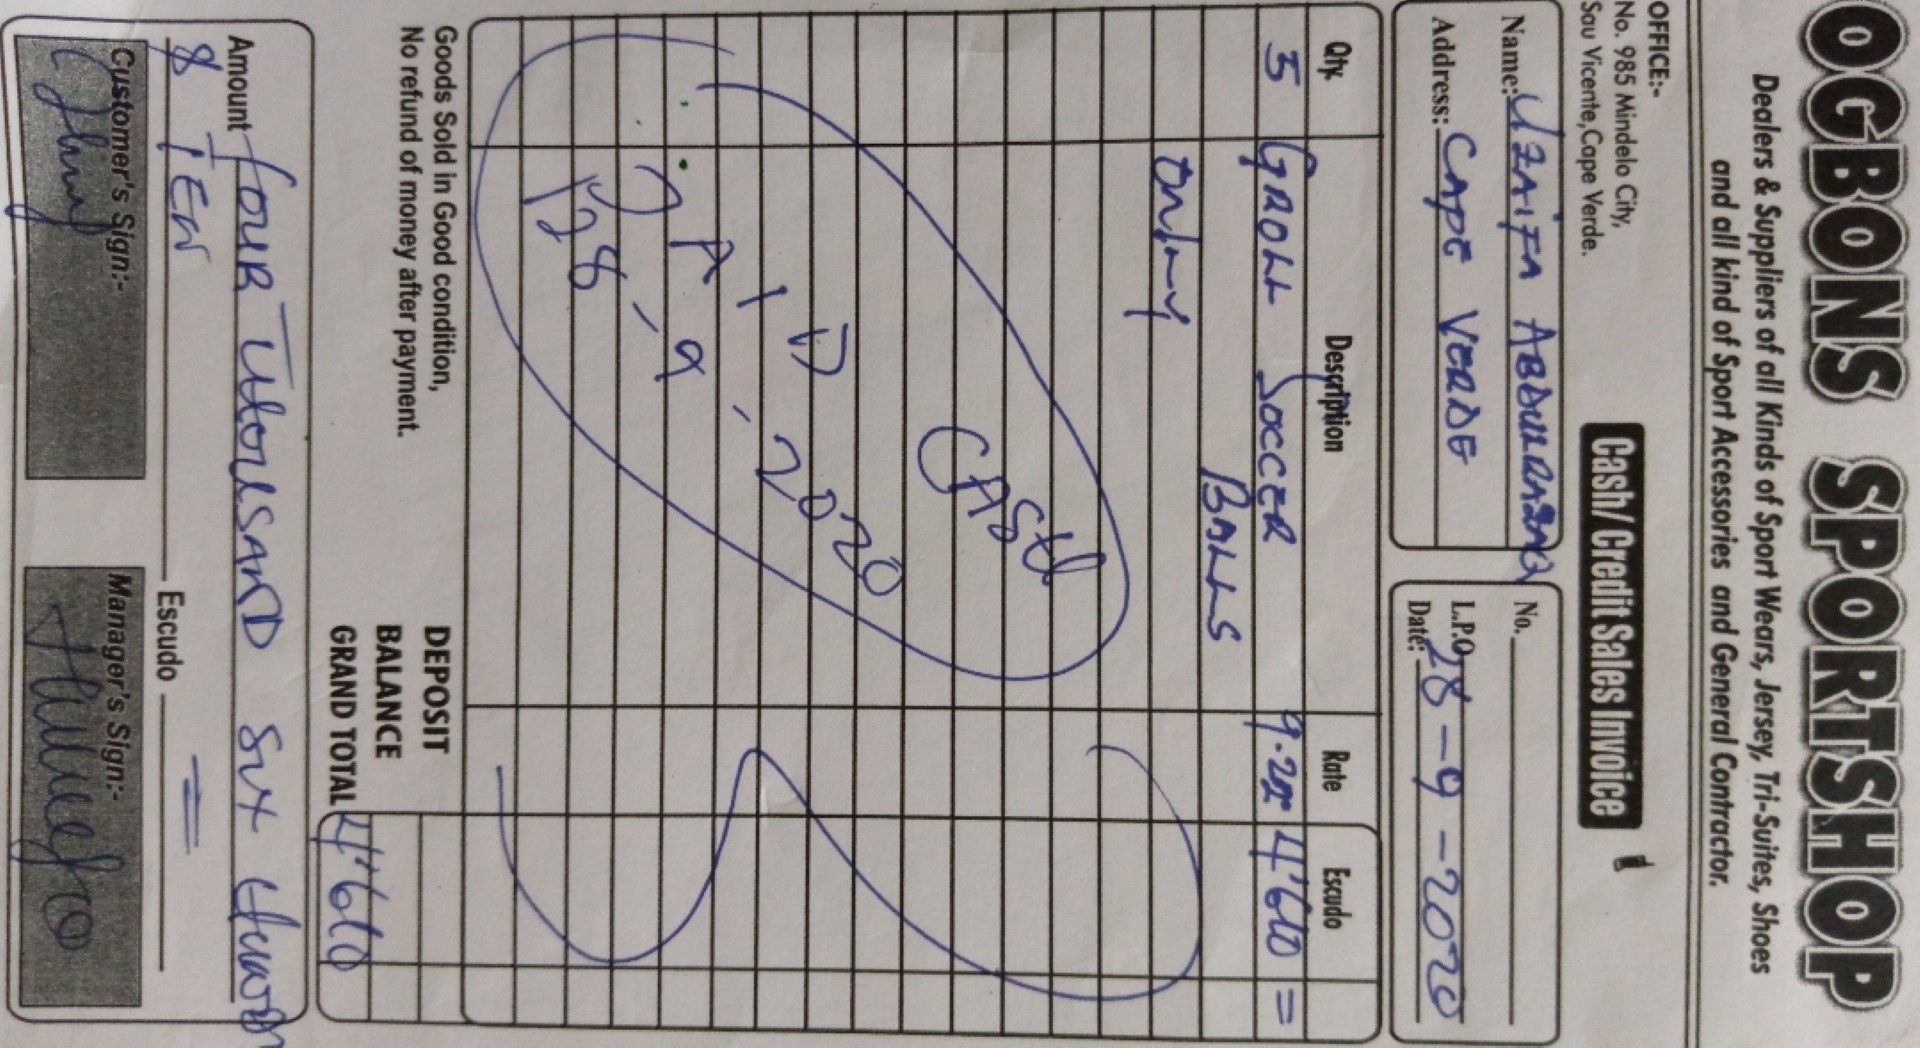 OGBONS SPORTSHOP
Dealers & Suppliers of all Kinds of Sport Wears, Jersey, Tri-Suites, Shoes
and all kind of Sport Accessories and General Contractor.
OFFICE:-
No. 985 Mindelo City,
Sau Vicente, Cape Verde.
Cash/Credit Sales Invoice
Name: UZAIFA
Address: CAPE VERDE
No.
L.P.O.
Date: 28-9-2020
Qty. Description Rate Escudo
5 GROLL SOCCER 4'610 =
BALLS
ONLY
CASH
PAID
28-9-2020
Goods Sold in Good condition,
No refund of money after payment.
DEPOSIT
BALANCE
GRAND TOTAL 4'610
Amount FOUR THOUSAND SIX
& TEN Escudo =
Customer's Sign:-
Manager's Sign:-